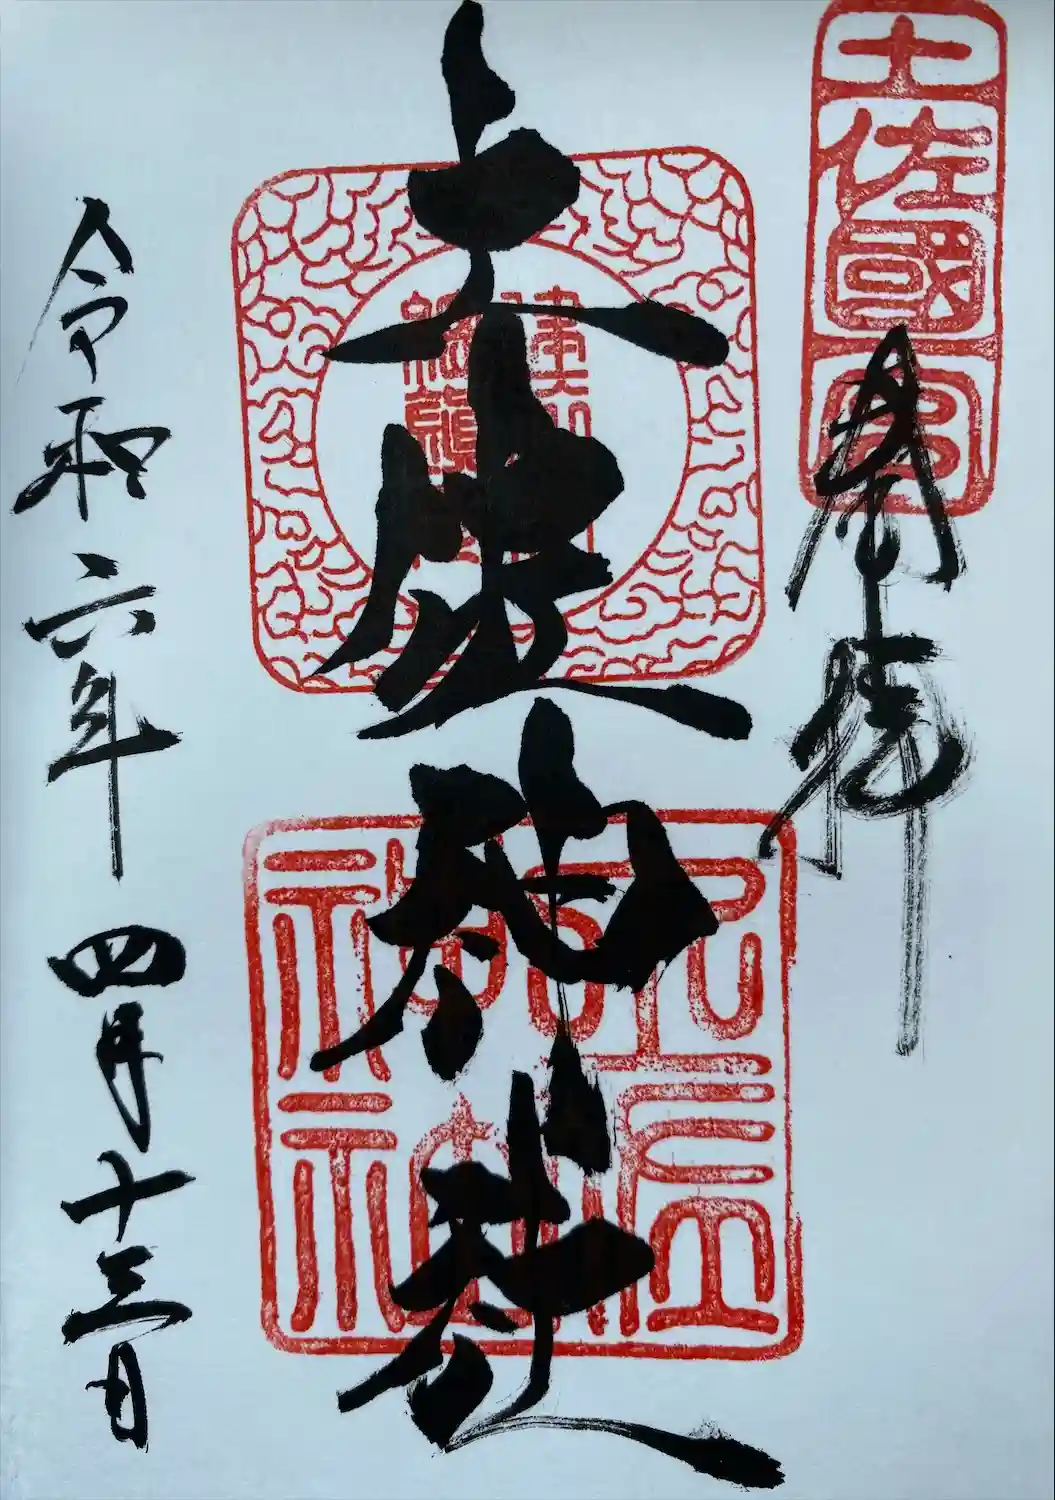 土佐國一宮
奉拝
土佐神社
令和六年四月十三日